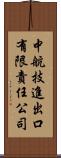 中航技進出口
有限責任公司